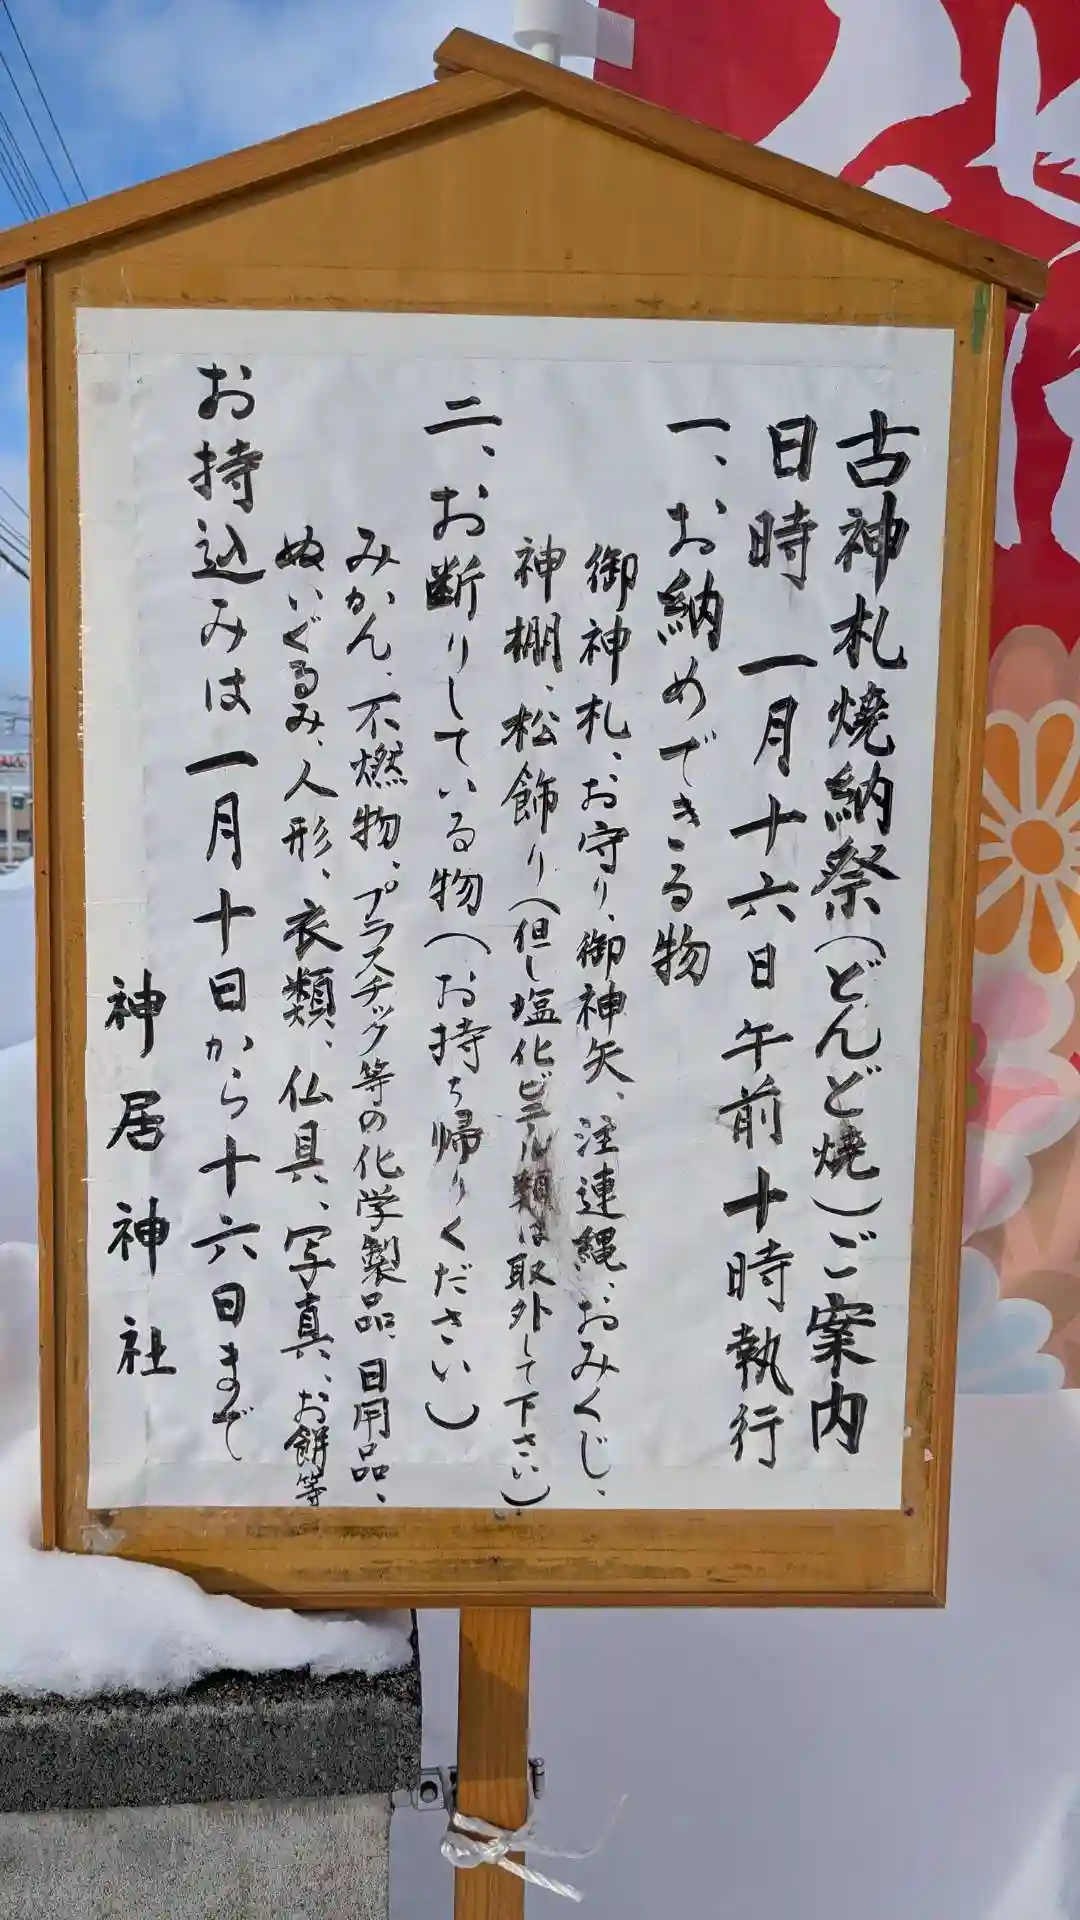 古神札焼納祭（どんど焼）ご案内
日時 一月十六日 午前十時執行
一、お納めできる物
御神札、お守り、御神矢、注連縄、おみくじ、
神棚、松飾り（但し塩化ビニール類は取外して下さい）
二、お断りしている物（お持ち帰りください）
みかん、不燃物、プラスチック等の化学製品、日用品、
ぬいぐるみ、人形、衣類、仏具、写真、お餅等
お持込みは一月十日から十六日まで
神居神社